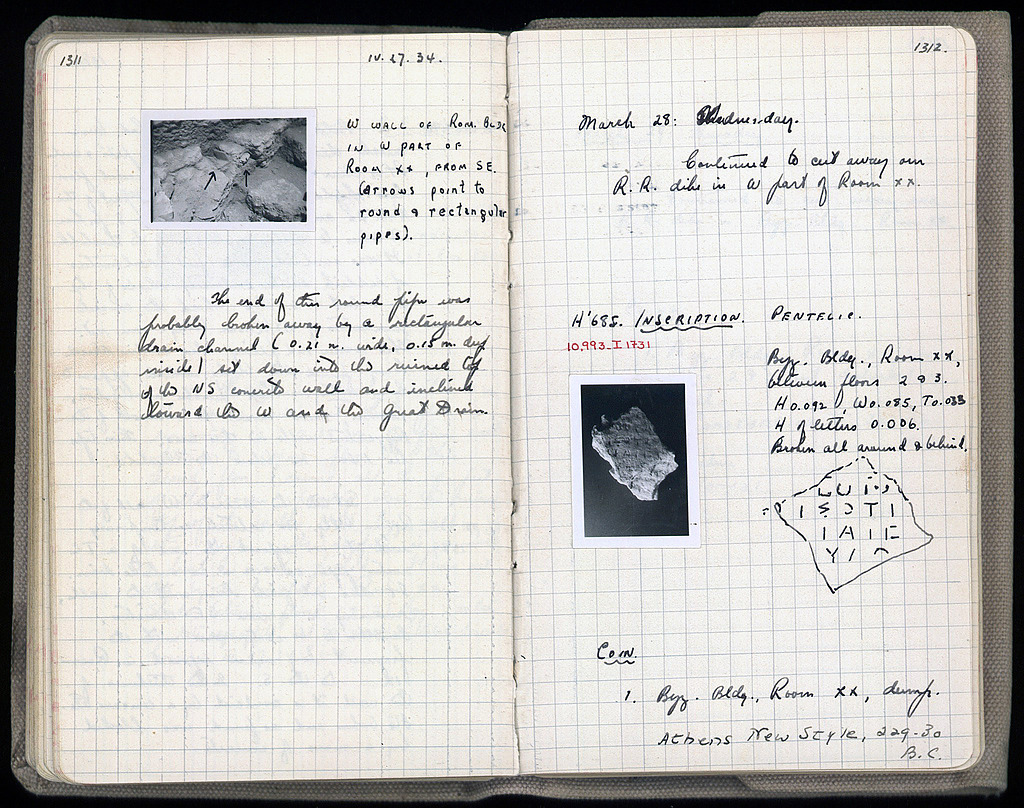 1311
IV. 27. 34.
W WALL OF ROM. BLDG
IN W PART OF
ROOM XX, FROM SE.
(arrows point to
round & rectangular
pipes).
The end of this round pipe was
probably broken away by a rectangular
drain channel (0.21 m. wide, 0.15 m. deep
inside) set down into the ruined top
of the NS concrete wall and inclined
toward the W and the Great Drain.
1312.
March 28: Wednesday.
Continued to cut away our
R.R. dike in W part of Room XX.
H'685. INSCRIPTION. PENTELIC.
10,993-I 1731
Byz. Bldg., Room XX,
between floors 2 & 3.
H 0.092, W 0.085, T 0.033
H of letters 0.006.
Broken all around & behind.
COIN.
1. Byz. Bldg., Room XX, dump.
Athens New Style, 229-30
B.C.